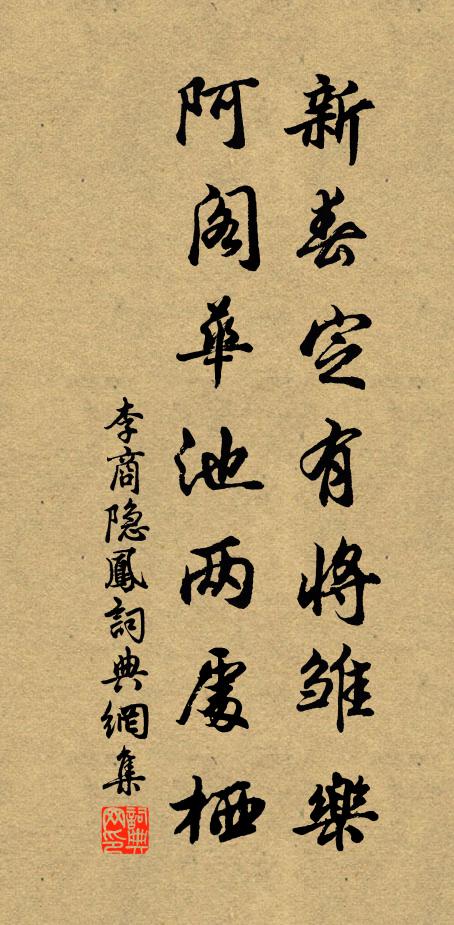 新春定有將雛樂
阿阁華池两處栖
李商隐鳳詞典網集
詞典網印